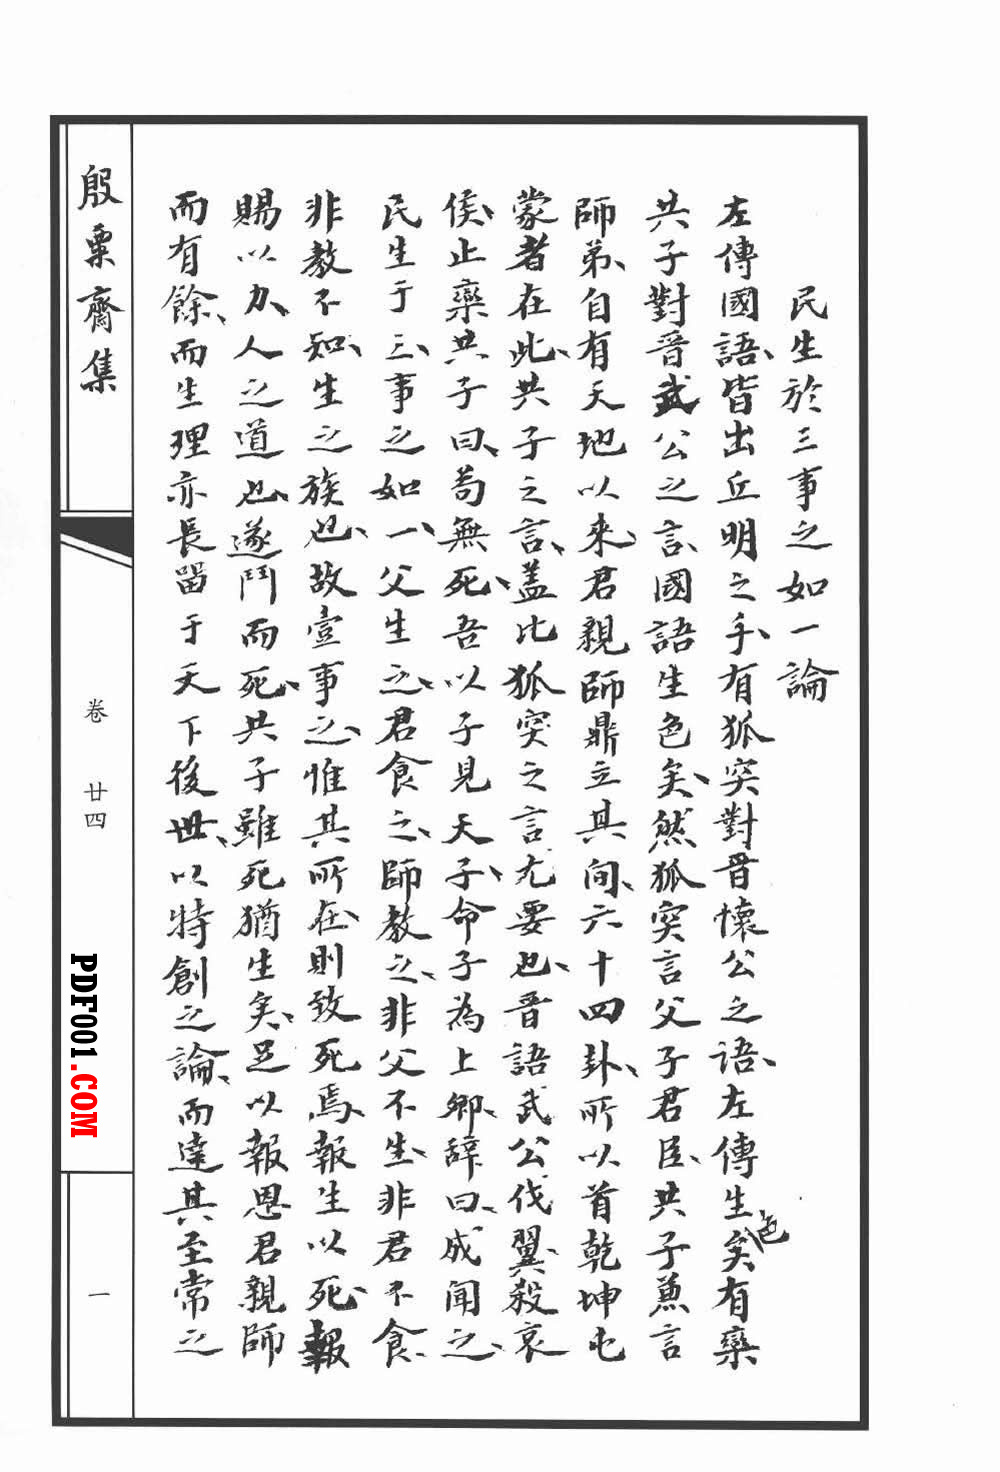 民生於三事之如一論
左傳國語、皆出丘明之手、有狐突對晋懷公之語、左傳生色矣有欒
共子對晋武公之言、國語生色矣、然狐突言父子君臣、共子兼言
師弟、自有天地以来、君親師鼎立其间、六十四卦、所以首乾坤屯
蒙者在此、共子之言、盖比狐突之言尤要也、晋語武公伐翼、殺哀
侯、止欒共子曰、苟無死、吾以子見天子、命子為上卿、辞曰、成闻之、
民生于三、事之如一、父生之、君食之、師教之、非父不生、非君不食、
非教不知、生之族也、故壹事之、惟其所在、則致死焉、報生以死、報
賜以力、人之道也、遂鬥而死、共子雖死猶生矣、足以報恩君親師
而有餘、而生理亦長留于天下後世、以特創之論、而達其至常之
殷粟齋集
卷 廿四
一
PDF001.COM